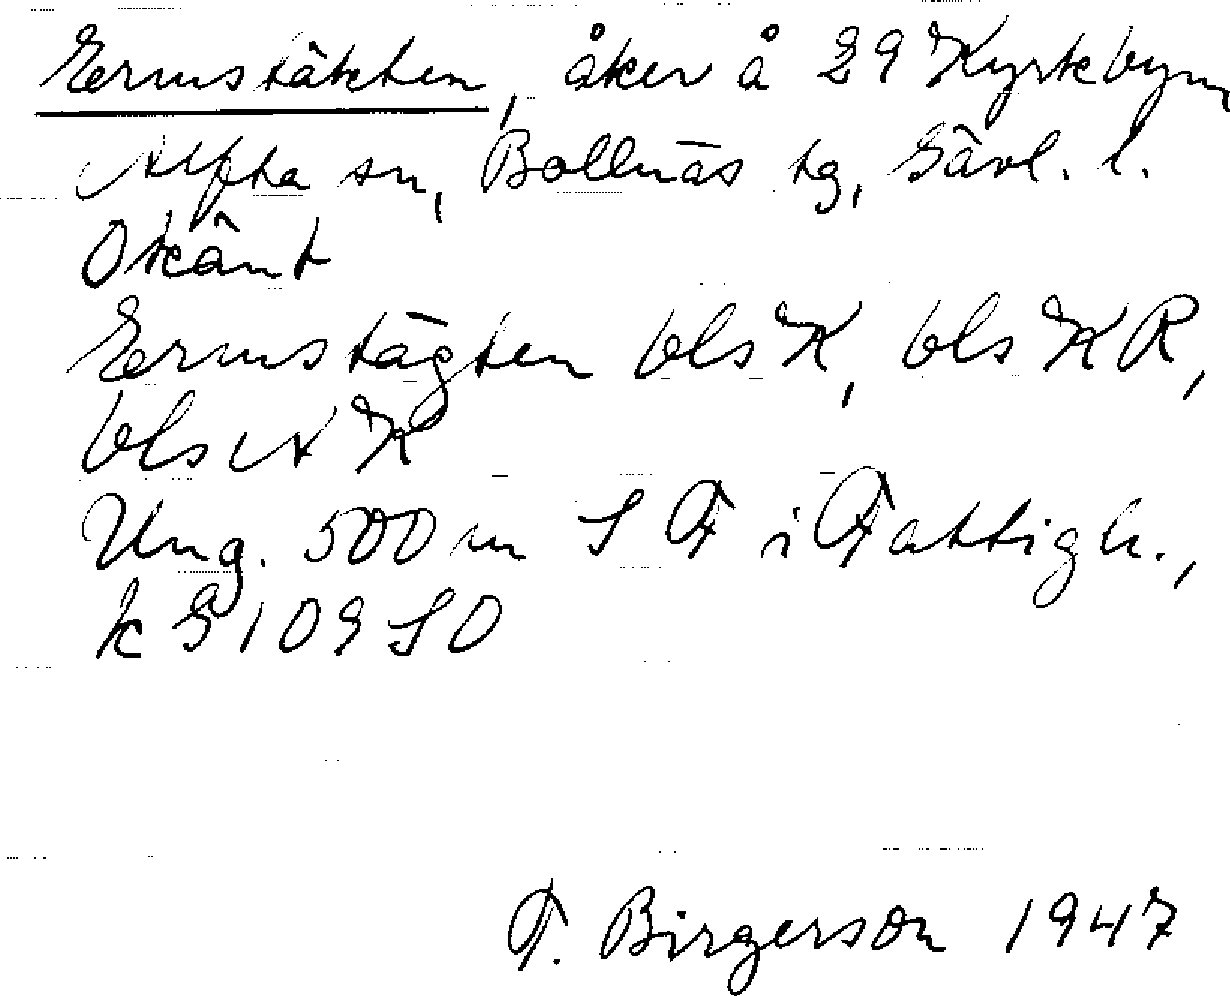 Ermstäkten, åker å 29 Kyrkbyn
Alfta sn, Bollnäs tg, Gävl. l.
Okänt
Ermstägten bls K, bls KR,
bls N K
Ung. 500 m S F i Fattigh.,
k G 109 SO
F. Birgerson 1947